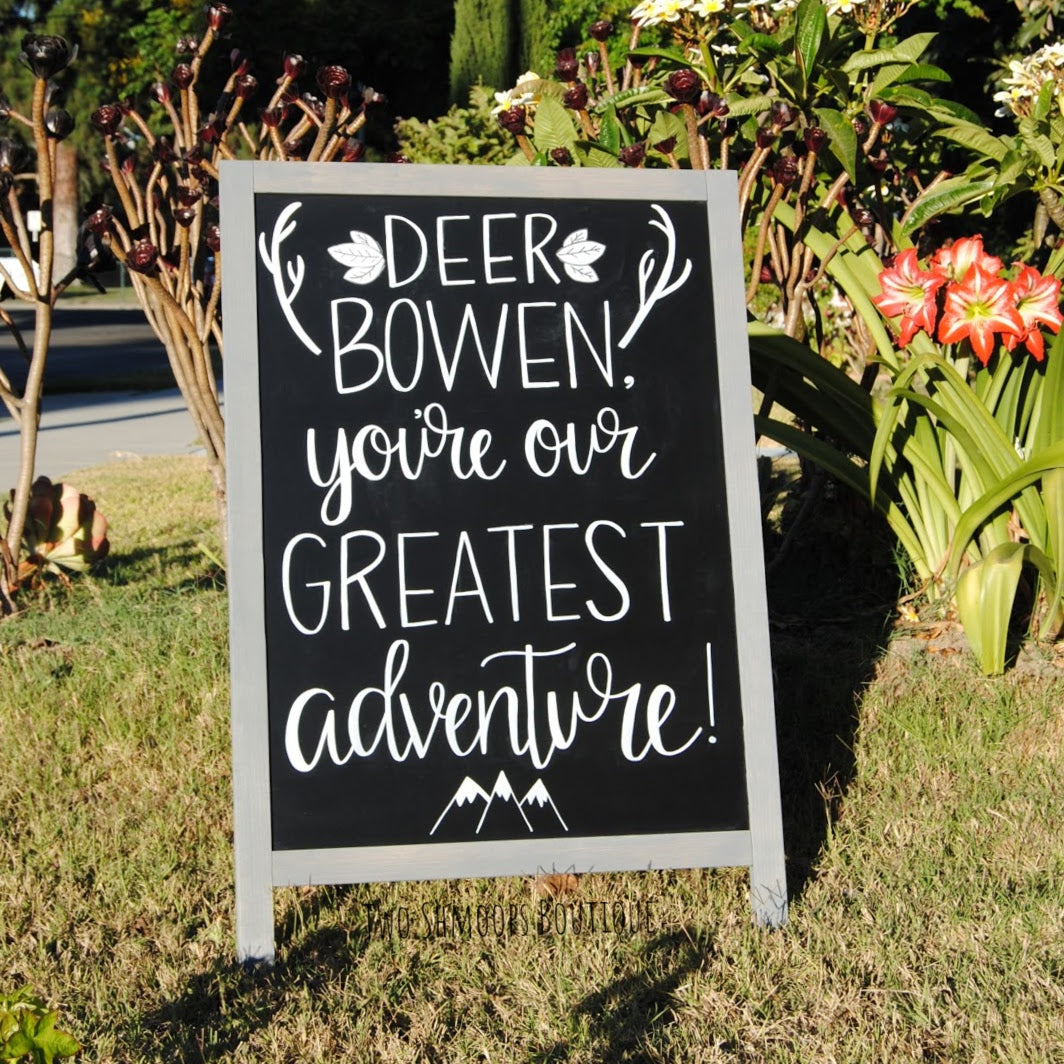 DEER
BOWEN,
you're our
GREATEST
adventure!
Two Shmoops Boutique